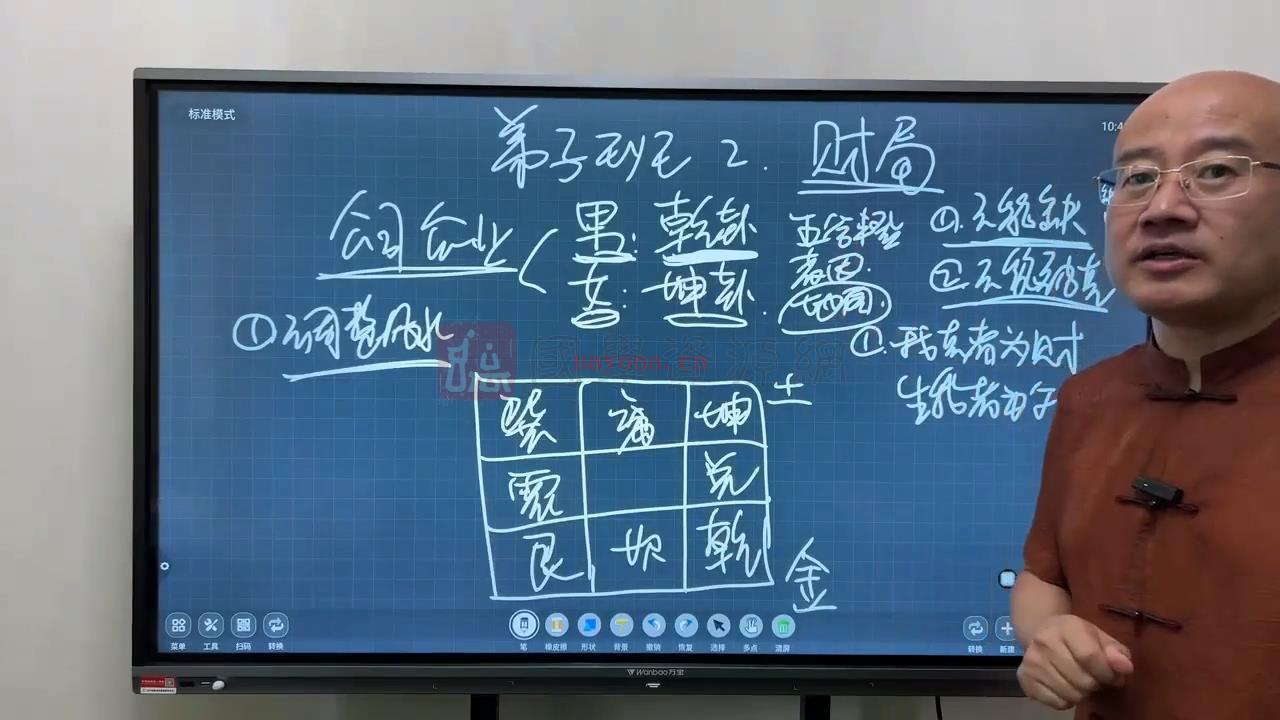 标准模式
10:4
弟子班 2. 财局
公司企业
男: 乾卦
女: 坤卦
①.不能缺
②.不能被克
①调整风水
①.我克者为财
生我者为
nayona.cn
巽 离 坤 土
震 兑
艮 坎 乾 金
菜单 工具 扫码 转换
笔 橡皮擦 形状 背景 撤销 恢复 选择 多点 清屏
转换 新建
Wanbao万宝